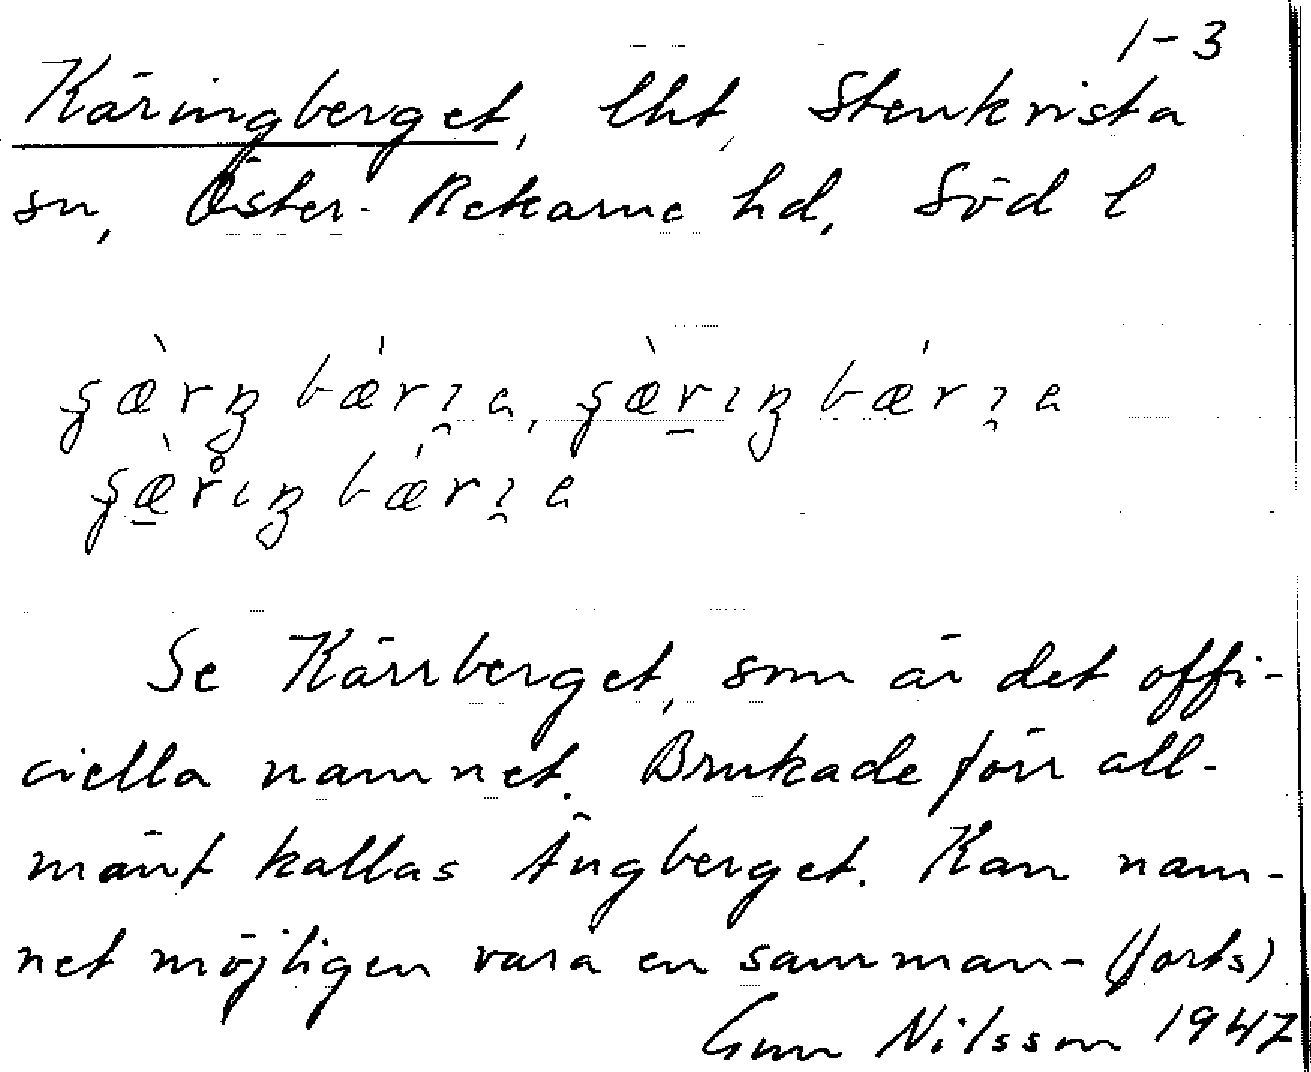 1-3
Käringberget, lht, Stenkvista
sn, Öster-Rekarne hd, Söd l
Se Kärrberget, som är det offi-
ciella namnet. Brukade förr all-
mänt kallas Ängberget. Kan nam-
net möjligen vara en samman- (forts)
Gun Nilsson 1947